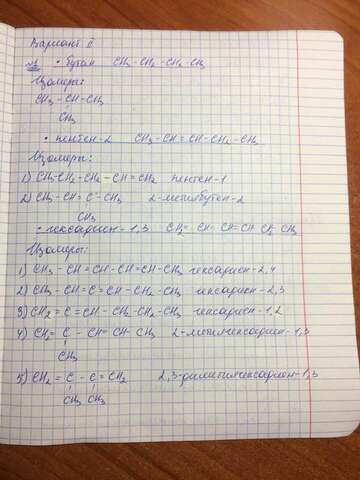 Вариант II
№1 • бутан CH3 - CH2 - CH2 - CH3
Изомеры:
CH3 - CH - CH3
CH3
• пентен-2 CH3 - CH = CH - CH2 - CH3
Изомеры:
1) CH3 - CH2 - CH2 - CH = CH2 пентен-1
2) CH3 - CH = C - CH3 2-метилбутен-2
CH3
• гексадиен-1,3 CH2 = CH - CH = CH - CH2 - CH3
Изомеры:
1) CH3 - CH = CH - CH = CH - CH3 гексадиен-2,4
2) CH3 - CH = C = CH - CH2 - CH3 гексадиен-2,3
3) CH2 = C = CH - CH2 - CH2 - CH3 гексадиен-1,2
4) CH2 = C - CH = CH - CH3 2-метилгексадиен-1,3
CH3
5) CH2 = C - C = CH2 2,3-диметилгексадиен-1,3
CH3 CH3